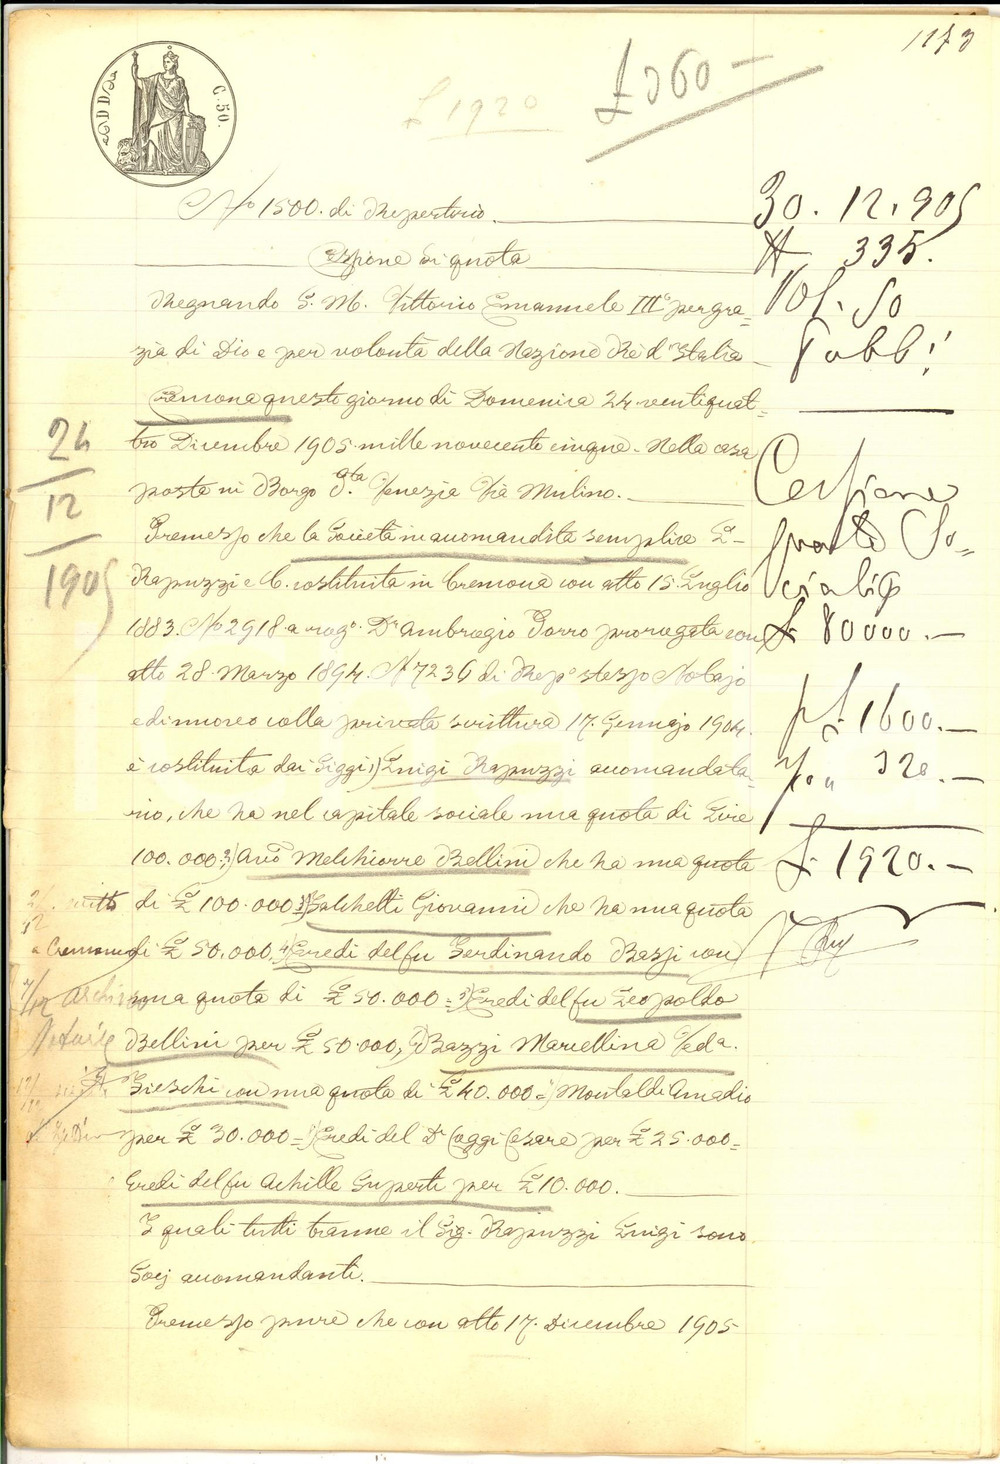 1173
£ 360 —
£ 1920
C. 50.
No 1500. di Repertorio.
Cessione di quota
Regnando S. M. Vittorio Emanuele III° per gra=
zia di Dio e per volontà della Nazione Rè d'Italia
Cremona questo giorno di Domenica 24 ventiquat=
tro Dicembre 1905 mille novecento cinque. Nella casa
posta in Borgo S.ta Venezia Via Mulino.
Premesso che la Società in accomandita semplice L=
Rapuzzi e C. costituita in Cremona con atto 15. Luglio
1883. No 2918 a rog.o Dr Ambrogio Porro prorogata con
atto 28. Marzo 1894. N 7236 di Rep.o stesso Notajo
e di nuovo colla privata scrittura 17. Gennajo 1904.
è costituita dai Siggi 1) Luigi Rapuzzi accomandata=
rio, che ha nel capitale sociale una quota di Lire
100.000= 2) Avv.o Melchiorre Bellini che ha una quota
di £ 100.000 3) Salchetti Giovanni che ha una quota
di £ 50.000, 4) Eredi del fu Ferdinando Bassi con
una quota di £ 50.000= 5) Eredi del fu Leopoldo
Bellini per £ 50.000, Bazzi Marcellina Ved.a
Sieschi con una quota di £ 40.000= Montaldi Amadio
per £ 30.000= Eredi del Dr Coggi Cesare per £ 25.000=
Eredi del fu Achille Superti per £ 10.000.
I quali tutti tranne il Sig. Rapuzzi Luigi sono
Socj accomandanti.
Premesso pure che con atto 17. Dicembre 1905
24
12
1905
a Cremona
Archivio
Notarile
30. 12. 905
N 335.
Vol. 50
Pubb!
Cessione
quote So=
ciali
£ 80000. —
pf 1600. —
320. —
£ 1920. —